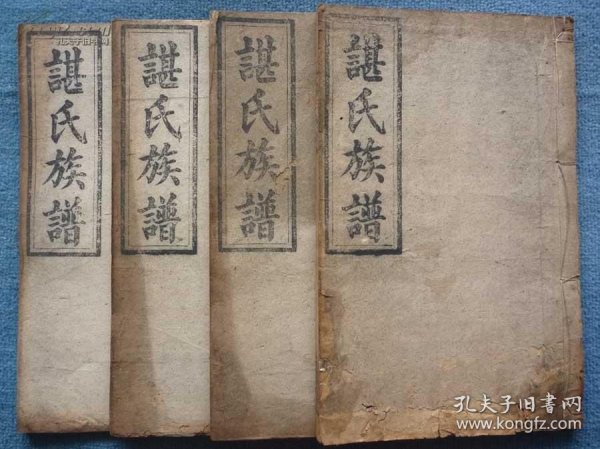 諶氏族譜
諶氏族譜
諶氏族譜
諶氏族譜
孔夫子旧书网
www.kongfz.com